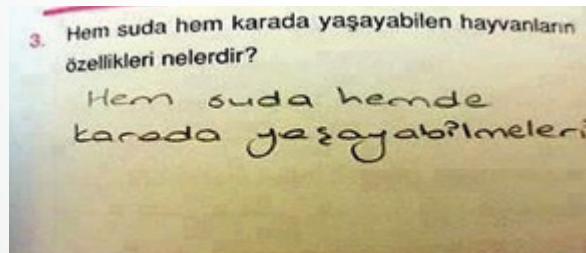 3. Hem suda hem karada yaşayabilen hayvanların
özellikleri nelerdir?
Hem suda hemde
karada yaşayabilmeleri